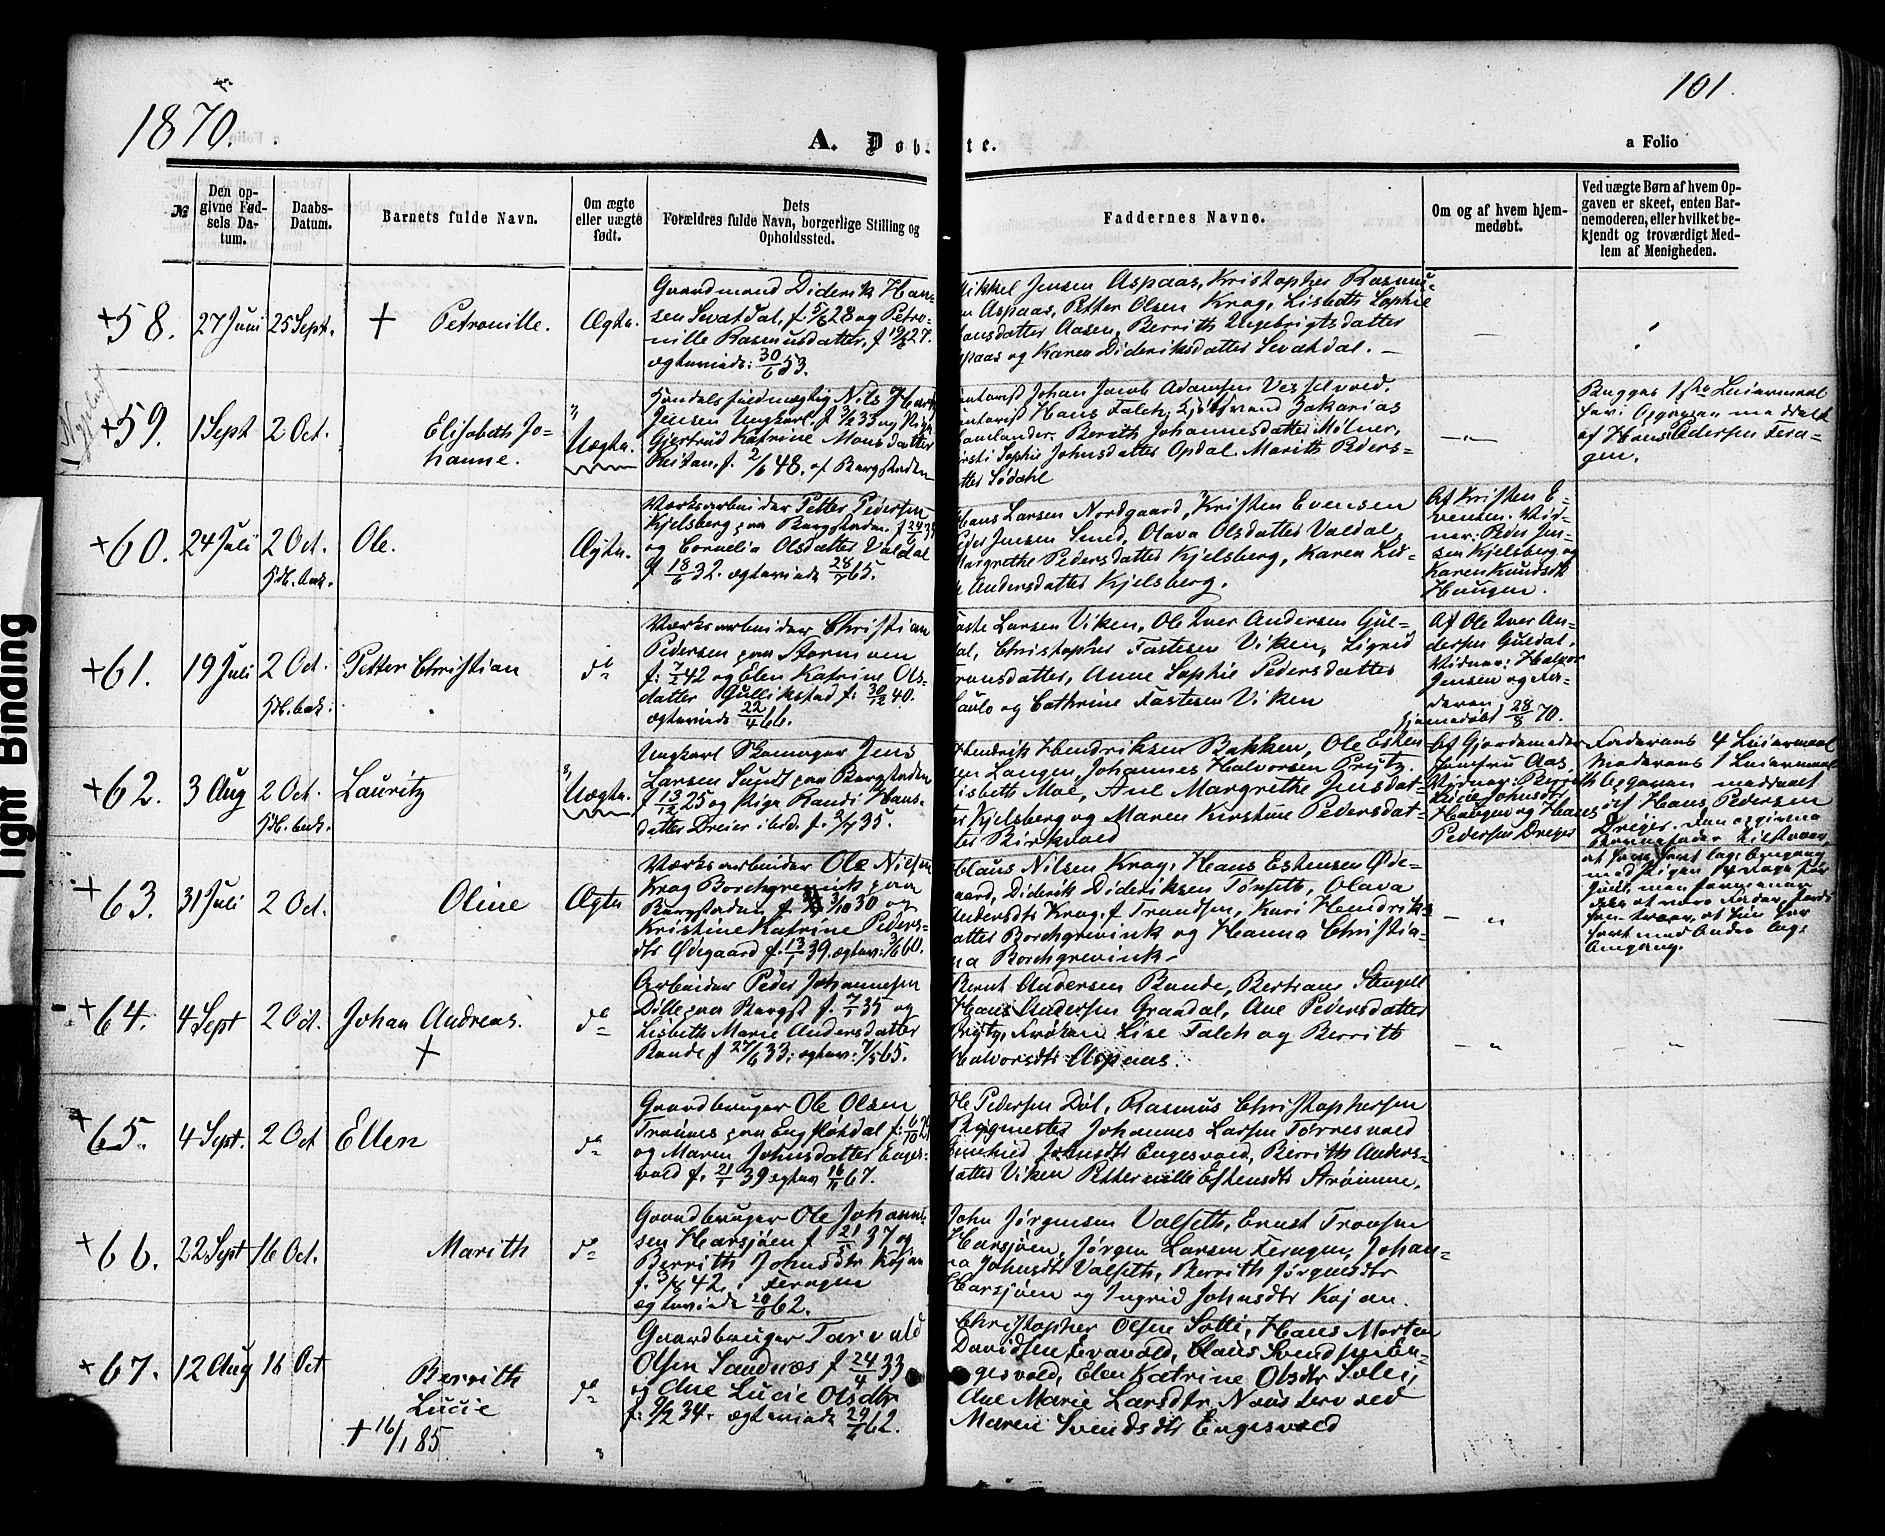 1870.
101.
A. Døbte.
a Folio
№
Den opgivne Fødsels Datum.
Daabs-Datum.
Barnets fulde Navn.
Om ægte eller uægte født.
Dets Forældres fulde Navn, borgerlige Stilling og Opholdssted.
Faddernes Navne.
Om og af hvem hjemmedøbt.
Ved uægte Børn af hvem Opgaven er skeet, enten Barnemoderen, eller hvilket bekjendt og troværdigt Medlem af Menigheden.
+58.
27 Juni
25 Sept.
+ Petronille.
Ægte.
Gaardmand Diderik Han-
sen Svatdal, f. 5/8 28 og Petro-
nille Rasmusdatter, f 19/8 27.
ægteviede: 30/6 53.
Mikkel Jensen Aspaas, Kristopher Rasmu-
n Aspaas, Petter Olsen Krog, Lisbeth Sophie
Hansdatter Aasen, Berrith Ingebrigtsdatter
spaas og Karen Dideriksdatter Svatdal. —
—
+59.
1 Sept
2 Oct.
Elisabeth Jo-
hanne.
Uægte.
Handelsfuldmægtig Nils
Jensen Ungkarl f. 3/12 33 og Pige
Gjertrud Katrine Monsdatter
Reitan, f. 2/6 48. af Bergstaden
Johan Jacob Adamsen Vesselvold,
Hans Falch, Zakarias
Berith Johannesdatter Milner,
Sophie Johnsdatter Opdal. Marith Peders-
tter Sødahl
—„—
Begges 1ste Leiermaal
Opgaven meddelt
af Hans Pedersen Fera-
gen.
+60.
24 Juli
2 Oct.
Ole.
Ægte.
Værksarbeider Petter Pedersen
Kjelsberg paa Bergstaden f 24
og Cornelia Olsdatter Valdal
f 18/6 32. ægteviede 28/7 65.
Hans Larsen Nordgaard, Kristen Evensen
Peder Jensen Smed, Olava Olsdatter Valdal,
Margrethe Pedersdatter Kjelsberg, Karen Lis-
Andersdatter Kjelsberg.
Af Kristen E-
vensen. Vid-
ner: Peder Jen-
sen Kjelsberg og
Karen Knudsdt
Haugen.
+61.
19 Juli
2 Oct.
Petter Christian
do
Værksarbeider Christian
Pedersen paa Stormoen
f. 7/2 42 og Elen Katrine Ols-
datter Gullikstad f. 30/12 40.
ægteviede 22/4 66.
Faste Larsen Viken, Ole Iver Andersen Gul-
dal, Christopher Fastesen Viken, Sigrid
Tronsdatter, Anne Sophie Pedersdatter
Paulo og Cathrine Fastesen Viken
Af Ole Iver An-
dersen Guldal,
Vidner: Halvor
Jensen og Fa-
deren,
hjemmedøbt 28/8 70.
+62.
3 Aug
2 Oct.
Lauritz
Uægte.
Ungkarl Skomager Jens
Larsen Sundt paa Bergstaden
f 13/12 25 og Pige Randi Hans-
datter Dreier ibid. f. 2/7 35.
Hendrik Hendriksen Bakken, Ole Esten-
sen Langen, Johannes Halvorsen Prytz,
Lisbeth Moe, Ane Margrethe Jensdat-
ter Kjelsberg og Maren Kirstine Pedersdat-
ter Birkvold
Af Gjordemoder
Jomfru Aas,
Vidner: Berrith
Lucie Johnsdt
Haugen og Hans
Pedersen Dreyer
Faderens 4 Leiermaal
Moderens 1 Leiermaal
Opgaven meddelt
af Hans Pedersen
Dreyer. Den opgivne
Barnefader tilstaaer
at have havt legs. Omgang
med Pigen 14 Dage før
Juul, men formener
ikke at være Fader, fordi
han troer, at hun har
havt med Andre legs.
Omgang.
+63.
31 Juli
2 Oct.
Oline
Ægte
Værksarbeider Ole Nilsen
Krog Borchgrevink paa
Bergstaden f. 3/10 30 og
Kristine Katrine Peders-
dtr Ødegaard f. 13/1 39. ægtev: 3/6 60.
Claus Nilsen Krog, Hans Estensen Øde-
gaard, Diderik Dideriksen Tørseth, Olava
Pedersdtr Krog, f. Trondsen, Kari Hendriks-
datter Borchgrevink og Hanna Christia-
na Borchgrevink —
— „
+64.
4 Sept
2 Oct.
Johan Andreas.
+
do
Arbeider Peder Johannesen
Dille paa Bergst f. 7/1 35 og
Lisbeth Marie Andersdatter
Bonde f 27/6 33; ægtev: 7/5 65.
Bernt Andersen Bonde, Bertram Stengell
Hans Andersen Graadal, Ane Pedersdatter
Prytz, Frøken Lise Falch og Berrith
Halvorsdtr Aspaas.
— „
— „ —
+65.
4 Sept.
2 Oct
Ellen
do
Gaardbruger Ole Olsen
Trønnes paa Engeslətdal f. 6/10
og Maren Johnsdatter Enges-
vold f. 21/1 39 ægtev 16/11 67.
Ole Pedersen Døl, Rasmus Christophersen
Bygmester Johannes Larsen Tørresvold
Gunhild Johnsdtr Engesvold, Berrith Anders-
datter Viken Petternille Estensdtr Strømme.
+66.
22 Sept
16 Oct.
Marith
do
Gaardbruger Ole Johanne-
sen Harsjøen f 21/5 37 og
Berrith Johnsdtr Kojan
f. 3/8 42. i Feragen
ægteviede 20/6 62.
John Jørgensen Valseth, Ernst Troosen
Harsjøen, Jørgen Larsen Feragen, Johan-
na Johnsdtr Valseth, Berrith Jørgensdtr
Harsjøen og Ingrid Johnsdtr Kojan.
+67.
12 Aug
16 Oct
Berrith
Lucie
+ 16/1 85
do
Gaardbruger Tarvald
Olsen Sandnæs f 24/4 33
og Ane Lucie Olsdtr
f. 9/2 34. ægteviede 29/6 62.
Christopher Olsen Solli, Hans Morten
Davidsen Evavold, Claus Svendsen En-
gesvold, Elen Katrine Olsdtr Solli,
Ane Marie Larsdtr Noustervold
Maren Svendsdtr Engesvold
Tight Binding